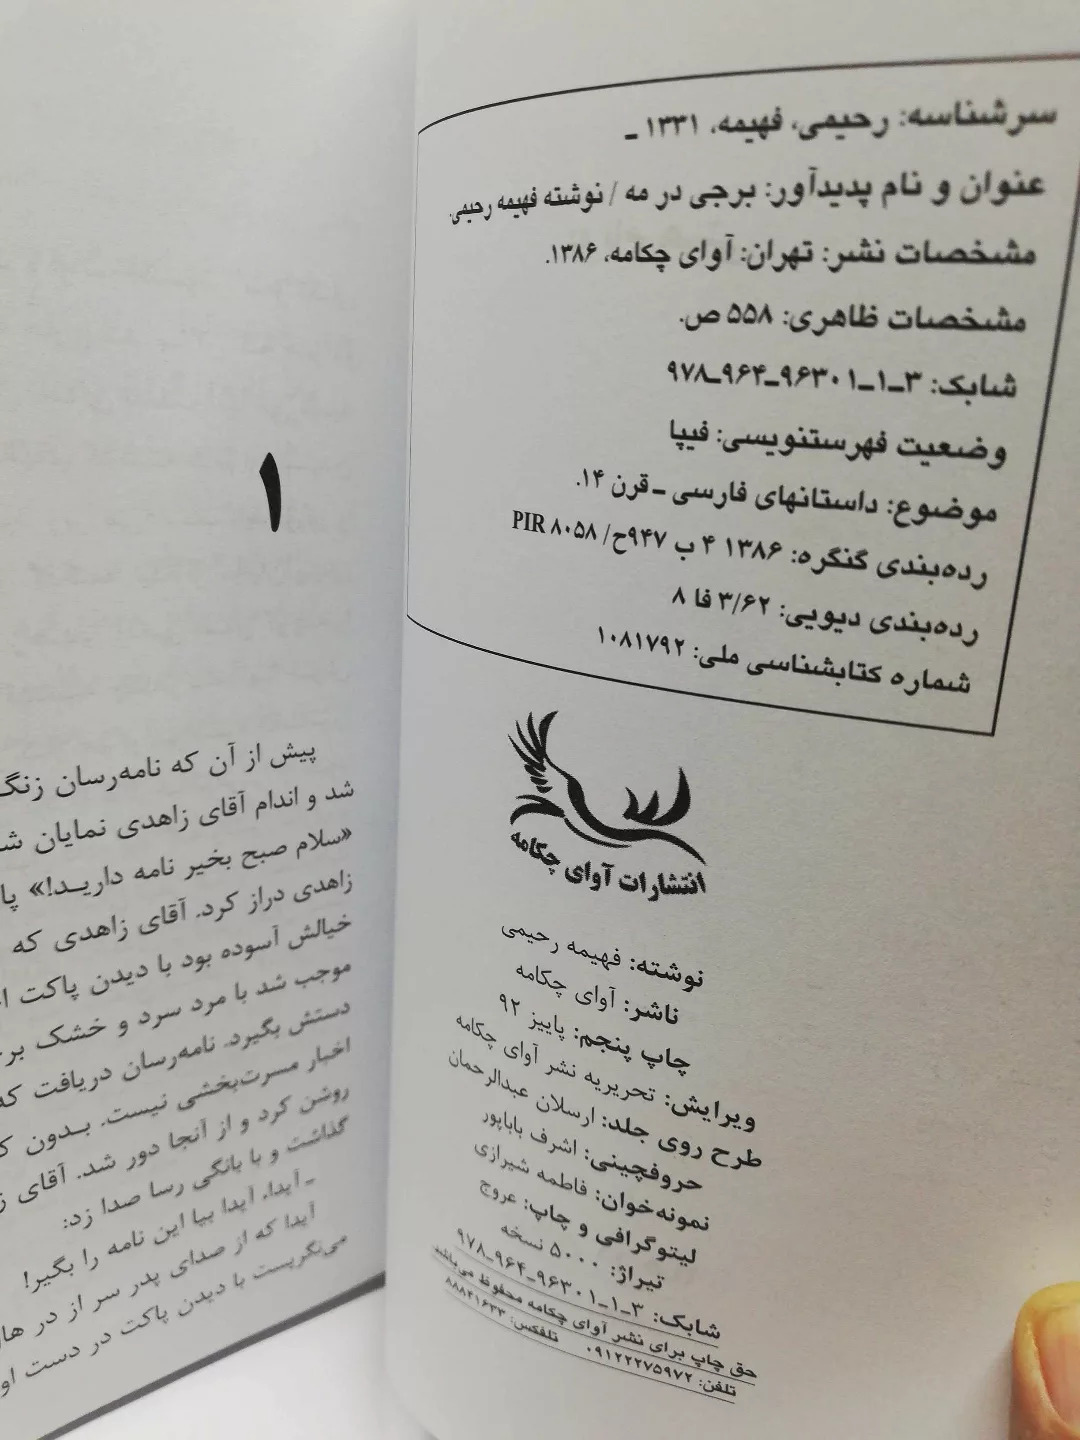 سرشناسه: رحیمی، فهیمه، ۱۳۳۱ ـ
عنوان و نام پدیدآور: برجی در مه / نوشته فهیمه رحیمی.
مشخصات نشر: تهران: آوای چکامه، ۱۳۸۶.
مشخصات ظاهری: ۵۵۸ ص.
شابک: ۳ـ۱ـ۹۶۳۰۱ـ۹۶۴ـ۹۷۸
وضعیت فهرستنویسی: فیپا
موضوع: داستانهای فارسی ـ قرن ۱۴.
رده‌بندی کنگره: ۱۳۸۶ ۴ ب ۹۴۷ح/ PIR ۸۰۵۸
رده‌بندی دیویی: ۳/۶۲ فا ۸
شماره کتابشناسی ملی: ۱۰۸۱۷۹۲
انتشارات آوای چکامه
نوشته: فهیمه رحیمی
ناشر: آوای چکامه
چاپ پنجم: پاییز ۹۲
ویرایش: تحریریه نشر آوای چکامه
طرح روی جلد: ارسلان عبدالرحمان
حروفچینی: اشرف باباپور
نمونه‌خوان: فاطمه شیرازی
لیتوگرافی و چاپ: عروج
تیراژ: ۵۰۰۰ نسخه
شابک: ۳ـ۱ـ۹۶۳۰۱ـ۹۶۴ـ۹۷۸
حق چاپ برای نشر آوای چکامه محفوظ می‌باشد
تلفن: ۰۹۱۲۲۲۷۵۹۷۲ تلفکس: ۸۸۸۲۱۶۳۳
۱
پیش از آن که نامه‌رسان زنگ
شد و اندام آقای زاهدی نمایان
«سلام صبح بخیر نامه دارید!»
زاهدی دراز کرد. آقای زاهدی که
خیالش آسوده بود با دیدن پاکت
موجب شد با مرد سرد و خشک
دستش بگیرد. نامه‌رسان دریافت که
اخبار مسرت‌بخشی نیست. بدون
روشن کرد و از آنجا دور شد. آقای
گذاشت و با بانگی رسا صدا زد:
ـ آیدا، آیدا بیا این نامه را بگیر!
آیدا که از صدای پدر سر از در
می‌نگریست با دیدن پاکت در دست او